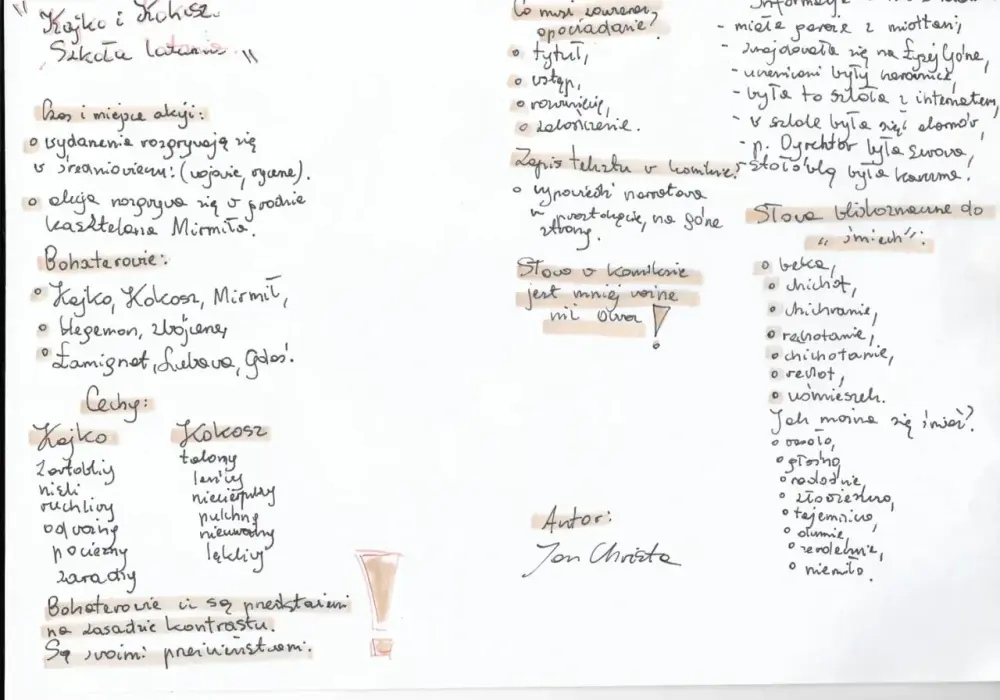 "Kajko i Kokosz.
Szkoła latania"
Czas i miejsce akcji:
wydarzenia rozgrywają się
w średniowieczu: (wojowie, rycerze).
akcja rozgrywa się w grodzie
kasztelana Mirmiła.
Bohaterowie:
Kajko, Kokosz, Mirmił,
Hegemon, zbójcerze,
Łamignat, Lubawa, Gdaś.
Cechy:
Kajko
żartobliwy
niski
ruchliwy
odważny
pocieszny
zaradny
Kokosz
łakomy
leniwy
niecierpliwy
pulchny
nieuważny
lękliwy
Bohaterowie ci są przedstawieni
na zasadzie kontrastu.
Są swoimi przeciwieństwami.
Co musi zawierać
opowiadanie?
tytuł,
wstęp,
rozwinięcie,
zakończenie.
Zapis tekstu w komiksie:
wypowiedzi narratora
w prostokącie, na górze
strony.
Słowo w komiksie
jest mniej ważne
niż obraz!
Autor:
Jan Christa
Informacje
- miała parcie z miotłami,
- znajdowała się na Łysej Górze,
- uczennicami były czarownice,
- była to szkoła z internatem,
- w szkole była sieć domów,
- p. Dyrektor była surowa,
stołówką była karczma.
Słowa bliskoznaczne do
"śmiech":
beka,
chichot,
chichranie,
rechotanie,
chichotanie,
rechot,
uśmieszek.
Jak można się śmiać?
wesoło,
głośno,
radośnie,
złowieszczo,
tajemniczo,
dumnie,
serdecznie,
niemiło.